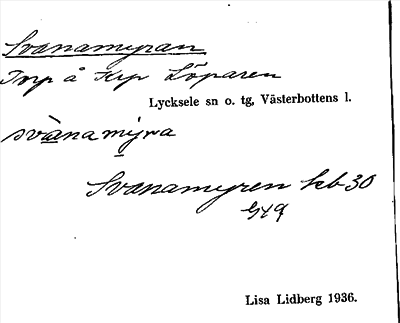 Svanamyran
Torp å Krp Löparen
Lycksele sn o. tg, Västerbottens l.
svànamỵra
Svanamyren kb 30
Lisa Lidberg 1936.